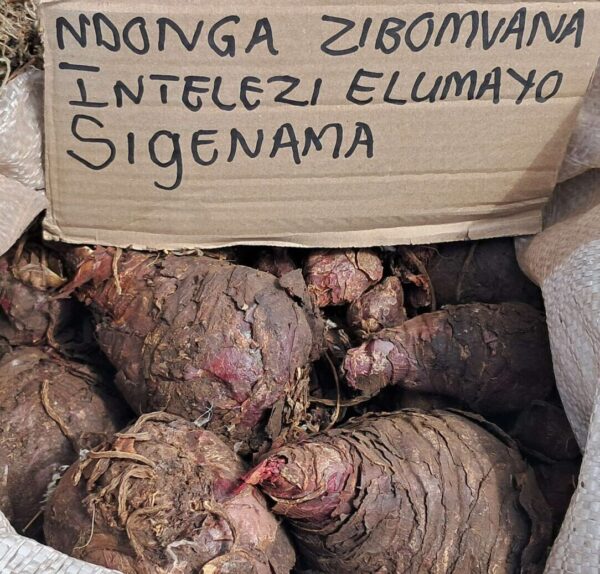 NDONGA ZIBOMVANA
INTELEZI ELUMAYO
SIgENAMA